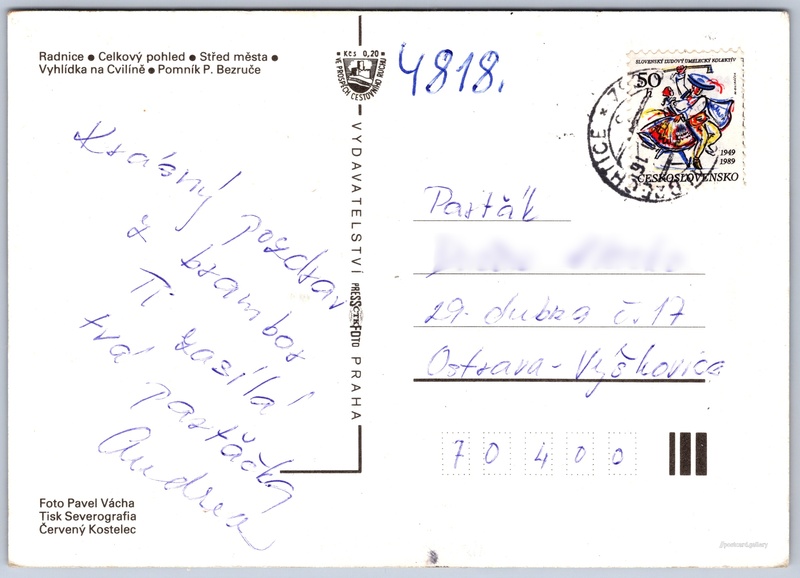 Radnice ● Celkový pohled ● Střed města ●
Vyhlídka na Cvilíně ● Pomník P. Bezruče
Kčs 0,20
VE PROSPĚCH CESTOVNÍHO RUCHU
4818.
SLOVENSKÝ ĽUDOVÝ UMELECKÝ KOLEKTÍV
50 h
1949
1989
ČESKOSLOVENSKO
16
Krásný pozdrav
z brambor
Ti zasílá
tvá pasťáčka
Andrea
VYDAVATELSTVÍ PRESSFOTO PRAHA
ČTK
Pasťák
29. dubna č. 17
Ostrava-Výškovice
70400
Foto Pavel Vácha
Tisk Severografia
Červený Kostelec
postcard.gallery